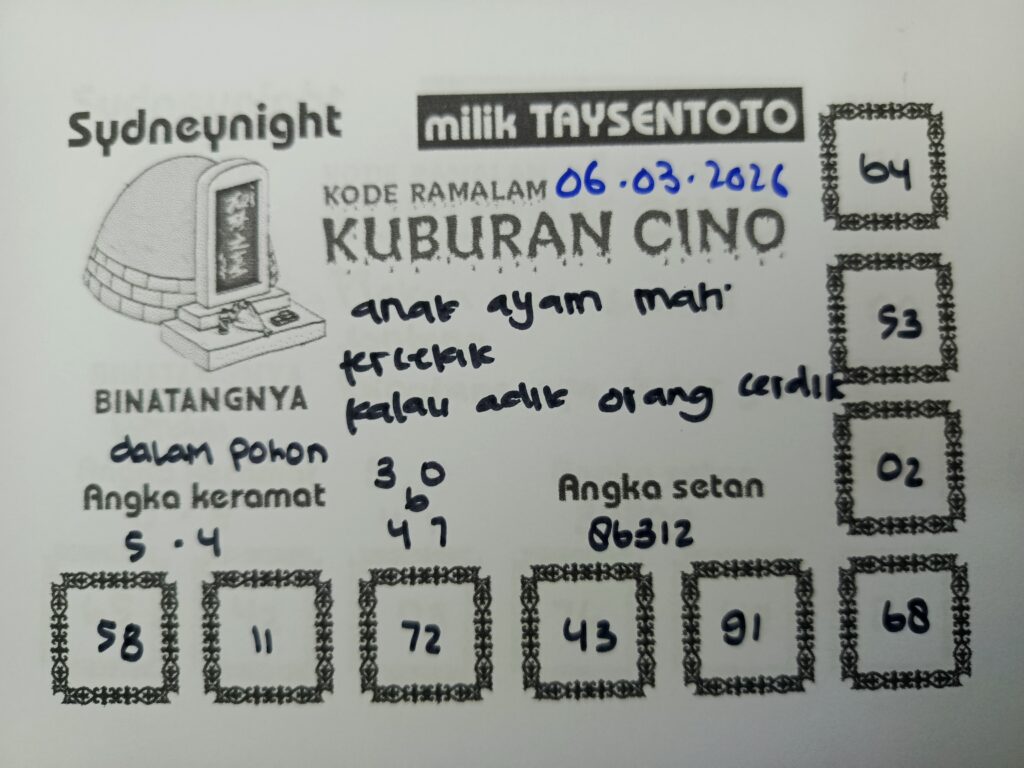 Sydneynight
milik TAYSENTOTO
KODE RAMALAM 06.03.2026
KUBURAN CINO
anak ayam mati
tercekik
kalau adik orang cerdik
BINATANGNYA
dalam pohon
Angka keramat
5 . 4
3 0
6
4 7
Angka setan
86312
64
53
02
68
58
11
72
43
91